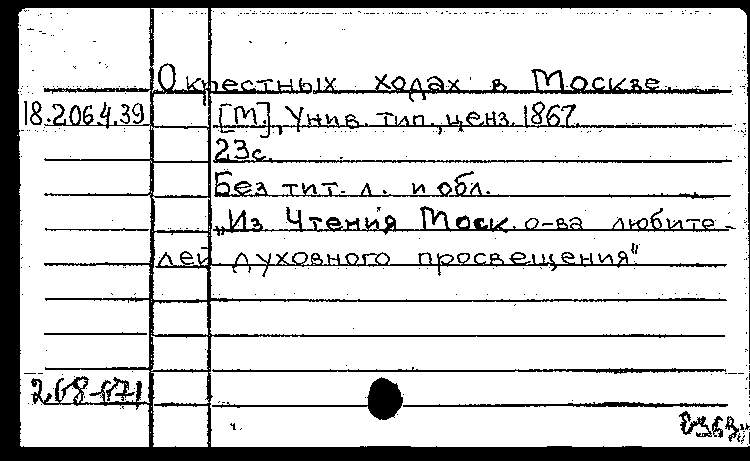 О крестных ходах в Москве.
18.206.4.39 [М.], Унив. тип., ценз. 1867.
23с.
Без тит. л. и обл.
„Из Чтения Моск. о-ва любите-
лей духовного просвещения"